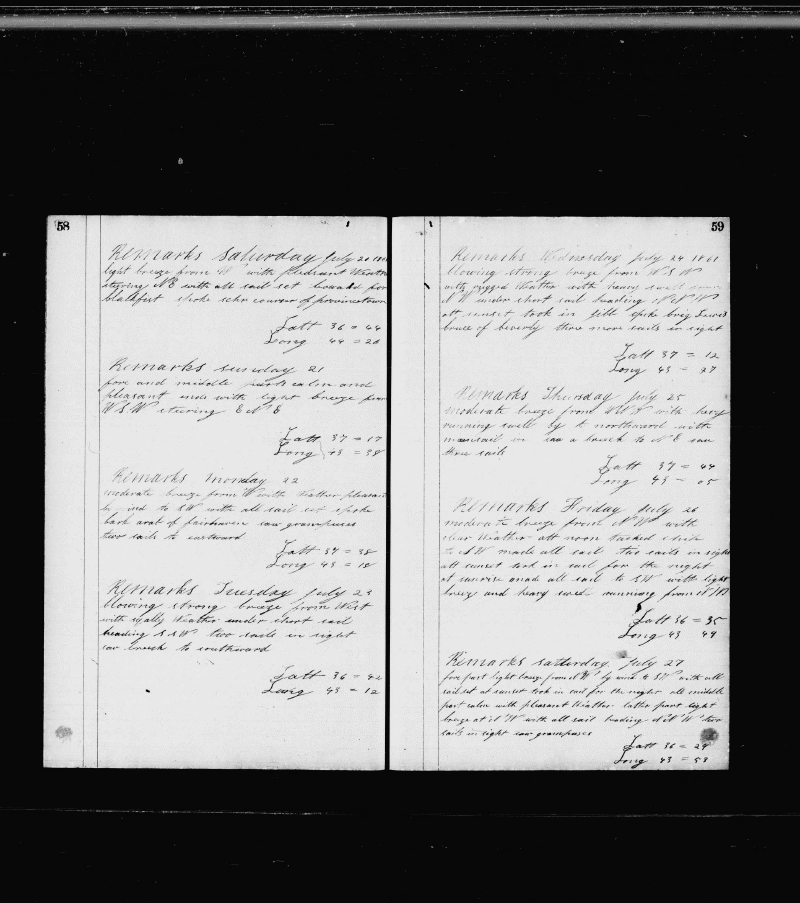 58
Remarks Saturday July 20 186
light breeze from W with pleasant Weather
stering NE with all sail set lowared for
blackfist spoke schr courser of provincetown
Latt 36 = 44
Long 44 = 20
Remarks sunday 21
fore and middle parts calm and
pleasant ends with light breeze from
W.S.W stering E N E
Latt 37 = 17
Long 43 = 38
Remarks monday 22
moderate breeze from W with Weather pleasant
by wind to SW with all sail set spoke
bark arab of fairhaven saw grampuses
two sails to eastward
Latt 37 = 38
Long 43 = 18
Remarks Tuesday July 23
blowing strong breeze from West
with squally Weather under short sail
heading S S W two sails in sight
saw breech to southward
Latt 36 = 42
Long 43 = 12
59
Remarks Wednesday July 24 1861
blowing strong breeze from W S W
with rugged Weather with heavy swell
N W under short sail heading N N W
att sunset took in jibb spoke brig Lewis
bruce of beverly three more sails in sight
Latt 37 = 12
Long 43 = 27
Remarks Thursday July 25
moderate breeze from with hevy
running swell by to northward with
mainsail in saw a breech to N E saw
three sails
Latt 37 = 44
Long 43 = 05
Remarks Friday July 26
moderate breeze from N W with
clear Weather att noon tacked ship
to S W made all sail two sails in sight
att sunset took in sail for the night
at sunrise made all sail to SW with light
breeze and heavy swell running from N W
Latt 36 = 35
Long 43 49
Remarks satturday July 27
fore part light breeze from N W by wind to SW with all
sail set at sunset took in sail for the night all middle
part calm with pleasant Weather latter part light
breeze at N W with all sail heading N N W two
sails in sight saw grampuses
Latt 36 = 29
Long 43 = 53